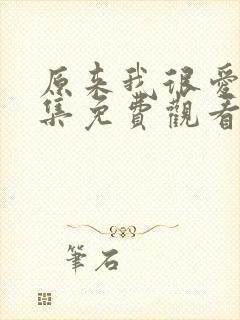 原来我很爱
集免費觀看
筆石